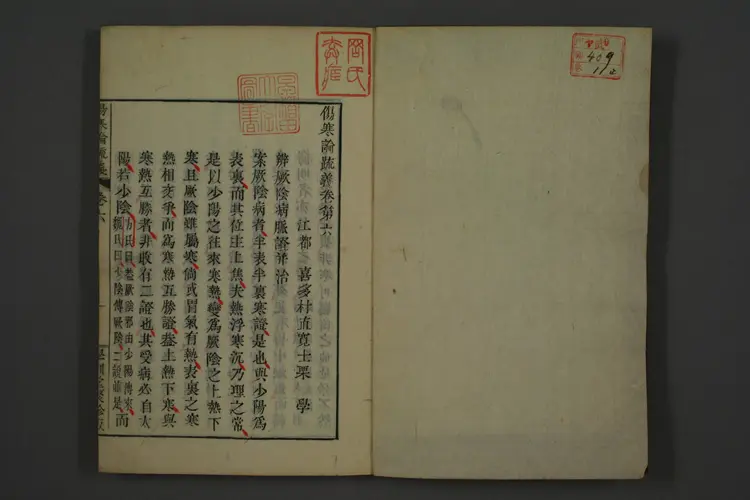 傷寒論疏義卷第六
江都 喜多村直寬士栗 學
辨厥陰病脈證并治
案厥陰病者半表半裏寒證是也與少陽爲
表裏而其位主上焦夫熱浮寒沉乃理之常
是以少陽之往來寒熱變爲厥陰之上熱下
寒且厥陰雖屬寒倘或胃氣有熱表裏之寒
熱相交爭而爲寒熱互勝證蓋上熱下寒與
寒熱互勝者非敢有二證也其受病必自太
陽若少陰方氏曰厥陰邪由少陽傳來
魏氏曰少陰傳厥陰二說誰是而
傷寒論疏義 卷六
409